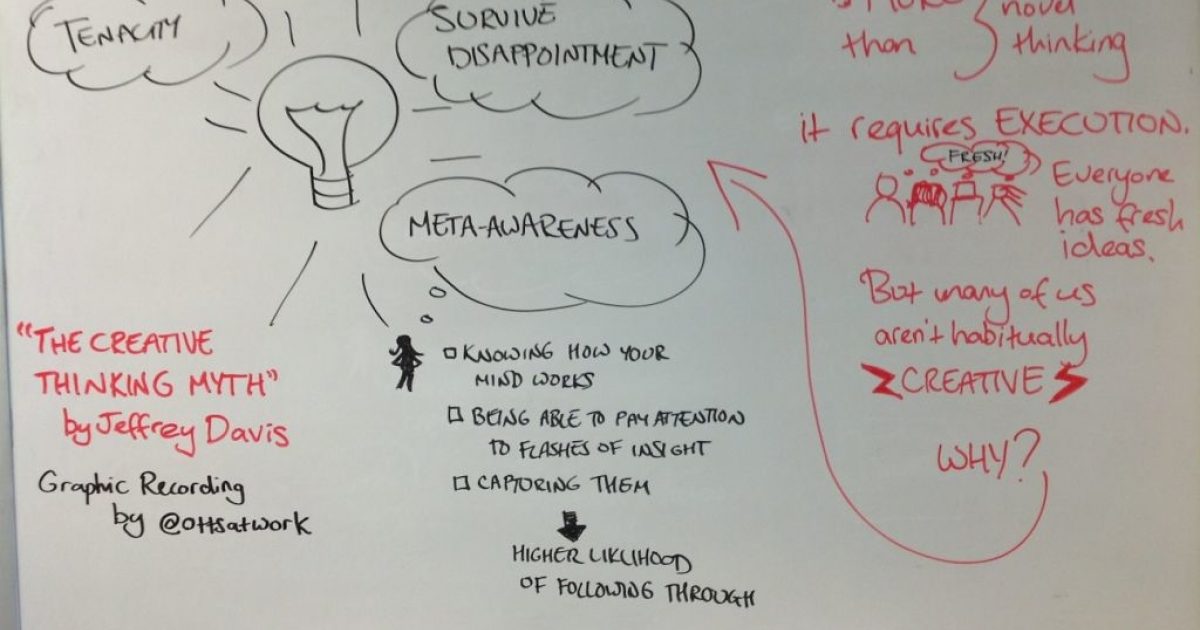 TENACITY
SURVIVE
DISAPPOINTMENT
META-AWARENESS
KNOWING HOW YOUR
MIND WORKS
BEING ABLE TO PAY ATTENTION
TO FLASHES OF INSIGHT
CAPTURING THEM
HIGHER LIKLIHOOD
OF FOLLOWING THROUGH
"THE CREATIVE
THINKING MYTH"
by Jeffrey Davis
Graphic Recording
by @ottsatwork
than
novel
thinking
it requires EXECUTION.
FRESH!
Everyone
has fresh
ideas.
But many of us
aren't habitually
CREATIVE
WHY?